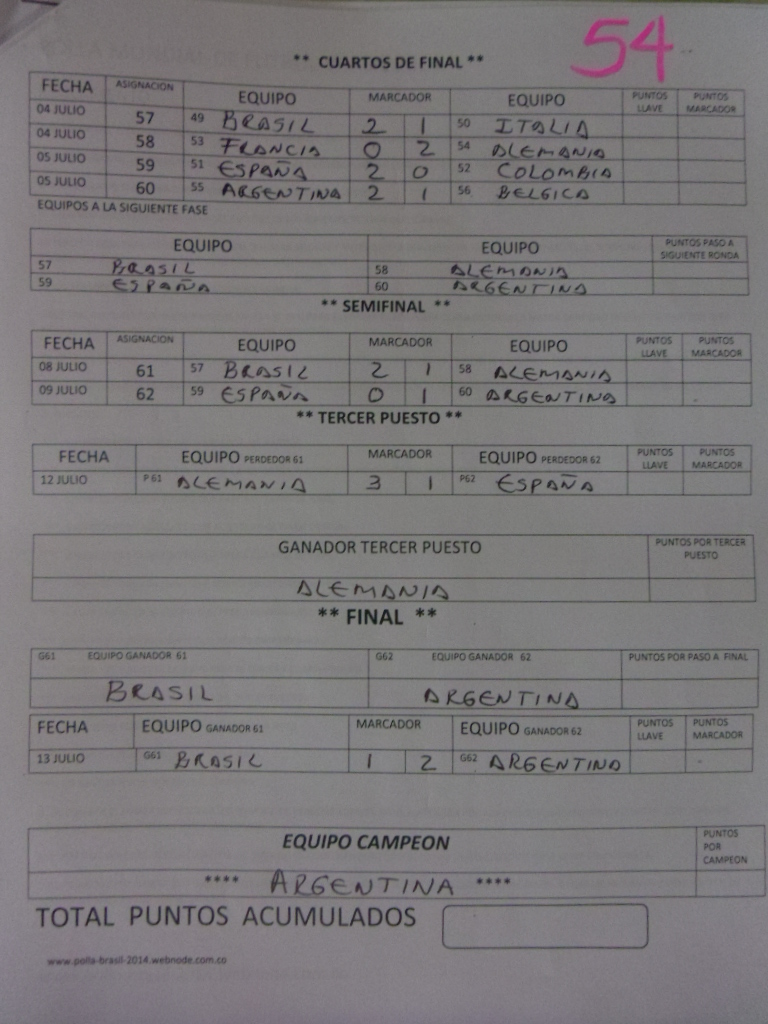 54
** CUARTOS DE FINAL **
FECHA ASIGNACION EQUIPO MARCADOR EQUIPO PUNTOS LLAVE PUNTOS MARCADOR
04 JULIO 57 49 BRASIL 2 1 50 ITALIA
04 JULIO 58 53 FRANCIA 0 2 54 ALEMANIA
05 JULIO 59 51 ESPAÑA 2 0 52 COLOMBIA
05 JULIO 60 55 ARGENTINA 2 1 56 BELGICA
EQUIPOS A LA SIGUIENTE FASE
EQUIPO EQUIPO PUNTOS PASO A SIGUIENTE RONDA
57 BRASIL 58 ALEMANIA
59 ESPAÑA 60 ARGENTINA
** SEMIFINAL **
FECHA ASIGNACION EQUIPO MARCADOR EQUIPO PUNTOS LLAVE PUNTOS MARCADOR
08 JULIO 61 57 BRASIL 2 1 58 ALEMANIA
09 JULIO 62 59 ESPAÑA 0 1 60 ARGENTINA
** TERCER PUESTO **
FECHA EQUIPO PERDEDOR 61 MARCADOR EQUIPO PERDEDOR 62 PUNTOS LLAVE PUNTOS MARCADOR
12 JULIO P61 ALEMANIA 3 1 P62 ESPAÑA
GANADOR TERCER PUESTO PUNTOS POR TERCER PUESTO
ALEMANIA
** FINAL **
G61 EQUIPO GANADOR 61 G62 EQUIPO GANADOR 62 PUNTOS POR PASO A FINAL
BRASIL ARGENTINA
FECHA EQUIPO GANADOR 61 MARCADOR EQUIPO GANADOR 62 PUNTOS LLAVE PUNTOS MARCADOR
13 JULIO G61 BRASIL 1 2 G62 ARGENTINA
EQUIPO CAMPEON PUNTOS POR CAMPEON
**** ARGENTINA ****
TOTAL PUNTOS ACUMULADOS
www.polla-brasil-2014.webnode.com.co